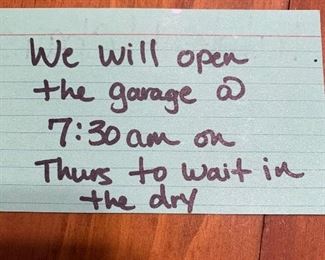 We will open
the garage @
7:30 am on
Thurs to wait in
the dry